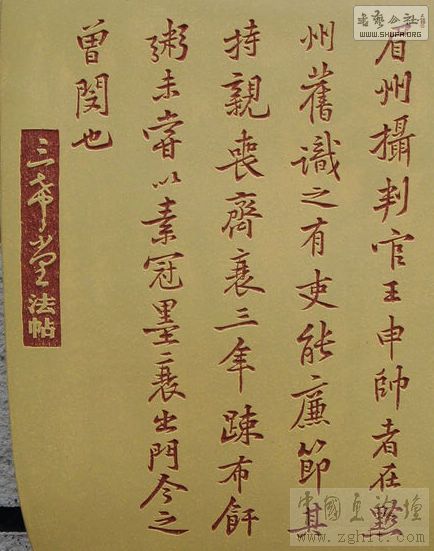 眉州攝判官王申帥者在黔
州舊識之有吏能廉節其
持親喪齊衰三年疎布飦
粥未嘗以素冠墨衰出門今之
曾閔也
三希堂法帖
書藝公社
www.SHUFA.ORG
www.zghlt.com